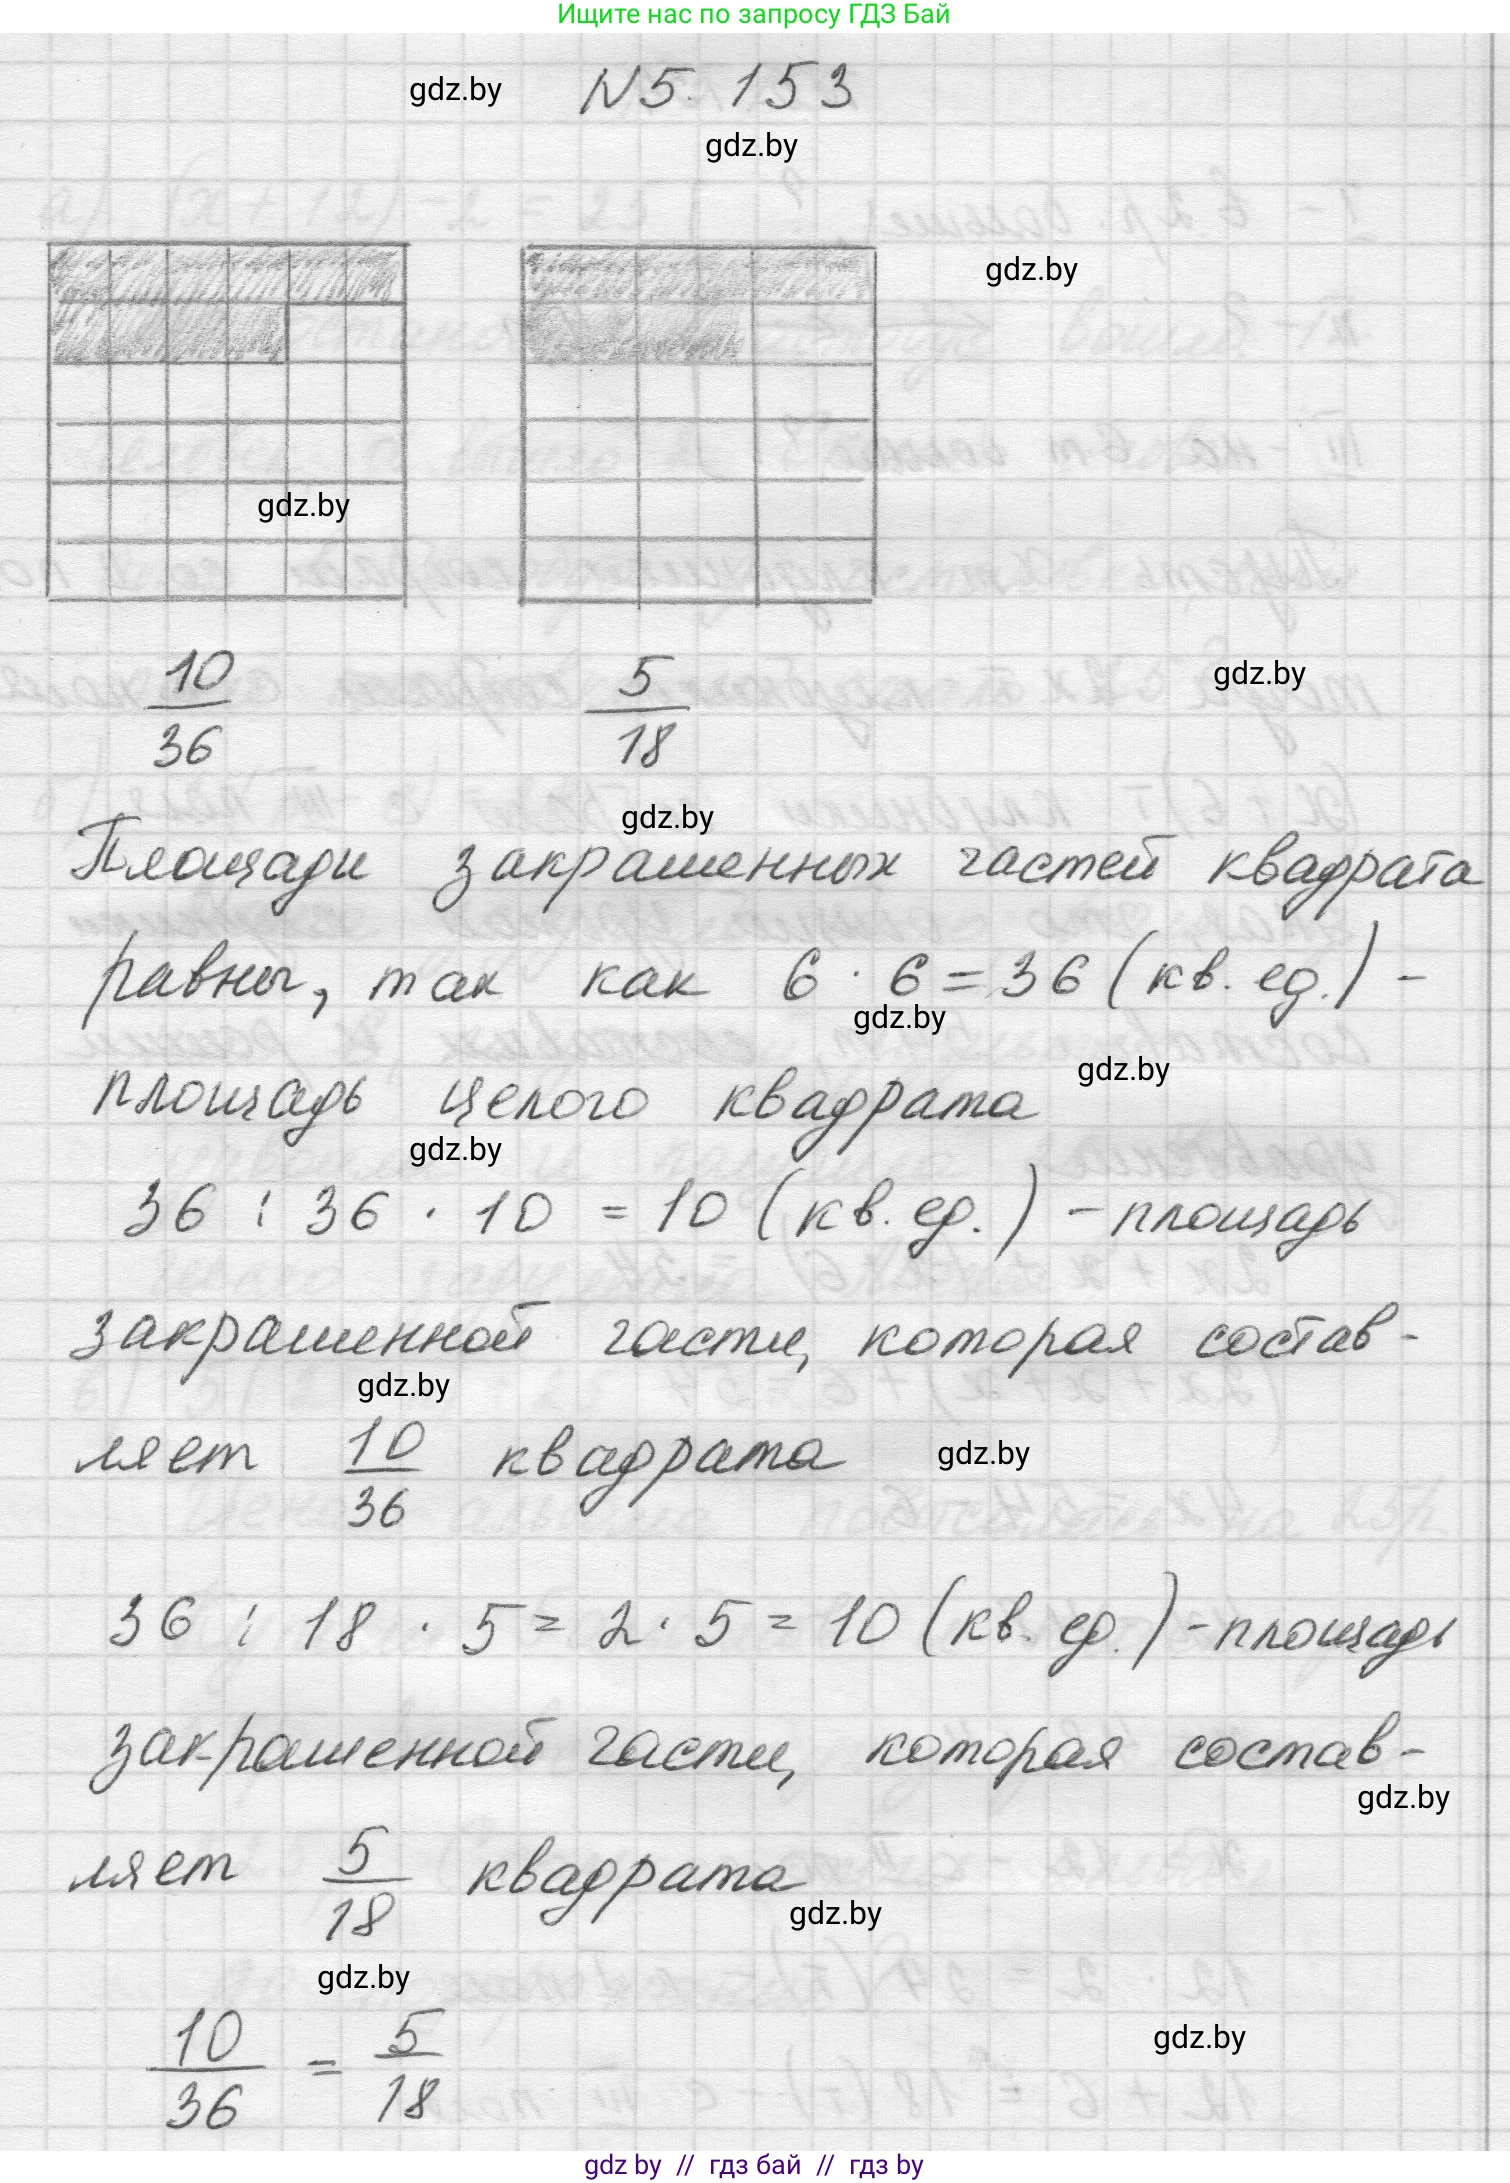 Ищите нас по запросу ГДЗ Бай
gdz.by N 5.153
gdz.by
gdz.by
gdz.by
10/36 5/18
gdz.by
gdz.by
Площади закрашенных частей квадрата
равны, так как 6 · 6 = 36 (кв. ед.) -
gdz.by
площадь целого квадрата
gdz.by
gdz.by
36 : 36 · 10 = 10 (кв. ед.) - площадь
закрашенной части, которая состав-
gdz.by
ляет 10/36 квадрата gdz.by
36 : 18 · 5 = 2 · 5 = 10 (кв. ед.) - площадь
закрашенной части, которая состав-
gdz.by
ляет 5/18 квадрата
gdz.by
gdz.by
10/36 = 5/18
gdz.by
gdz by // гдз бай // гдз by